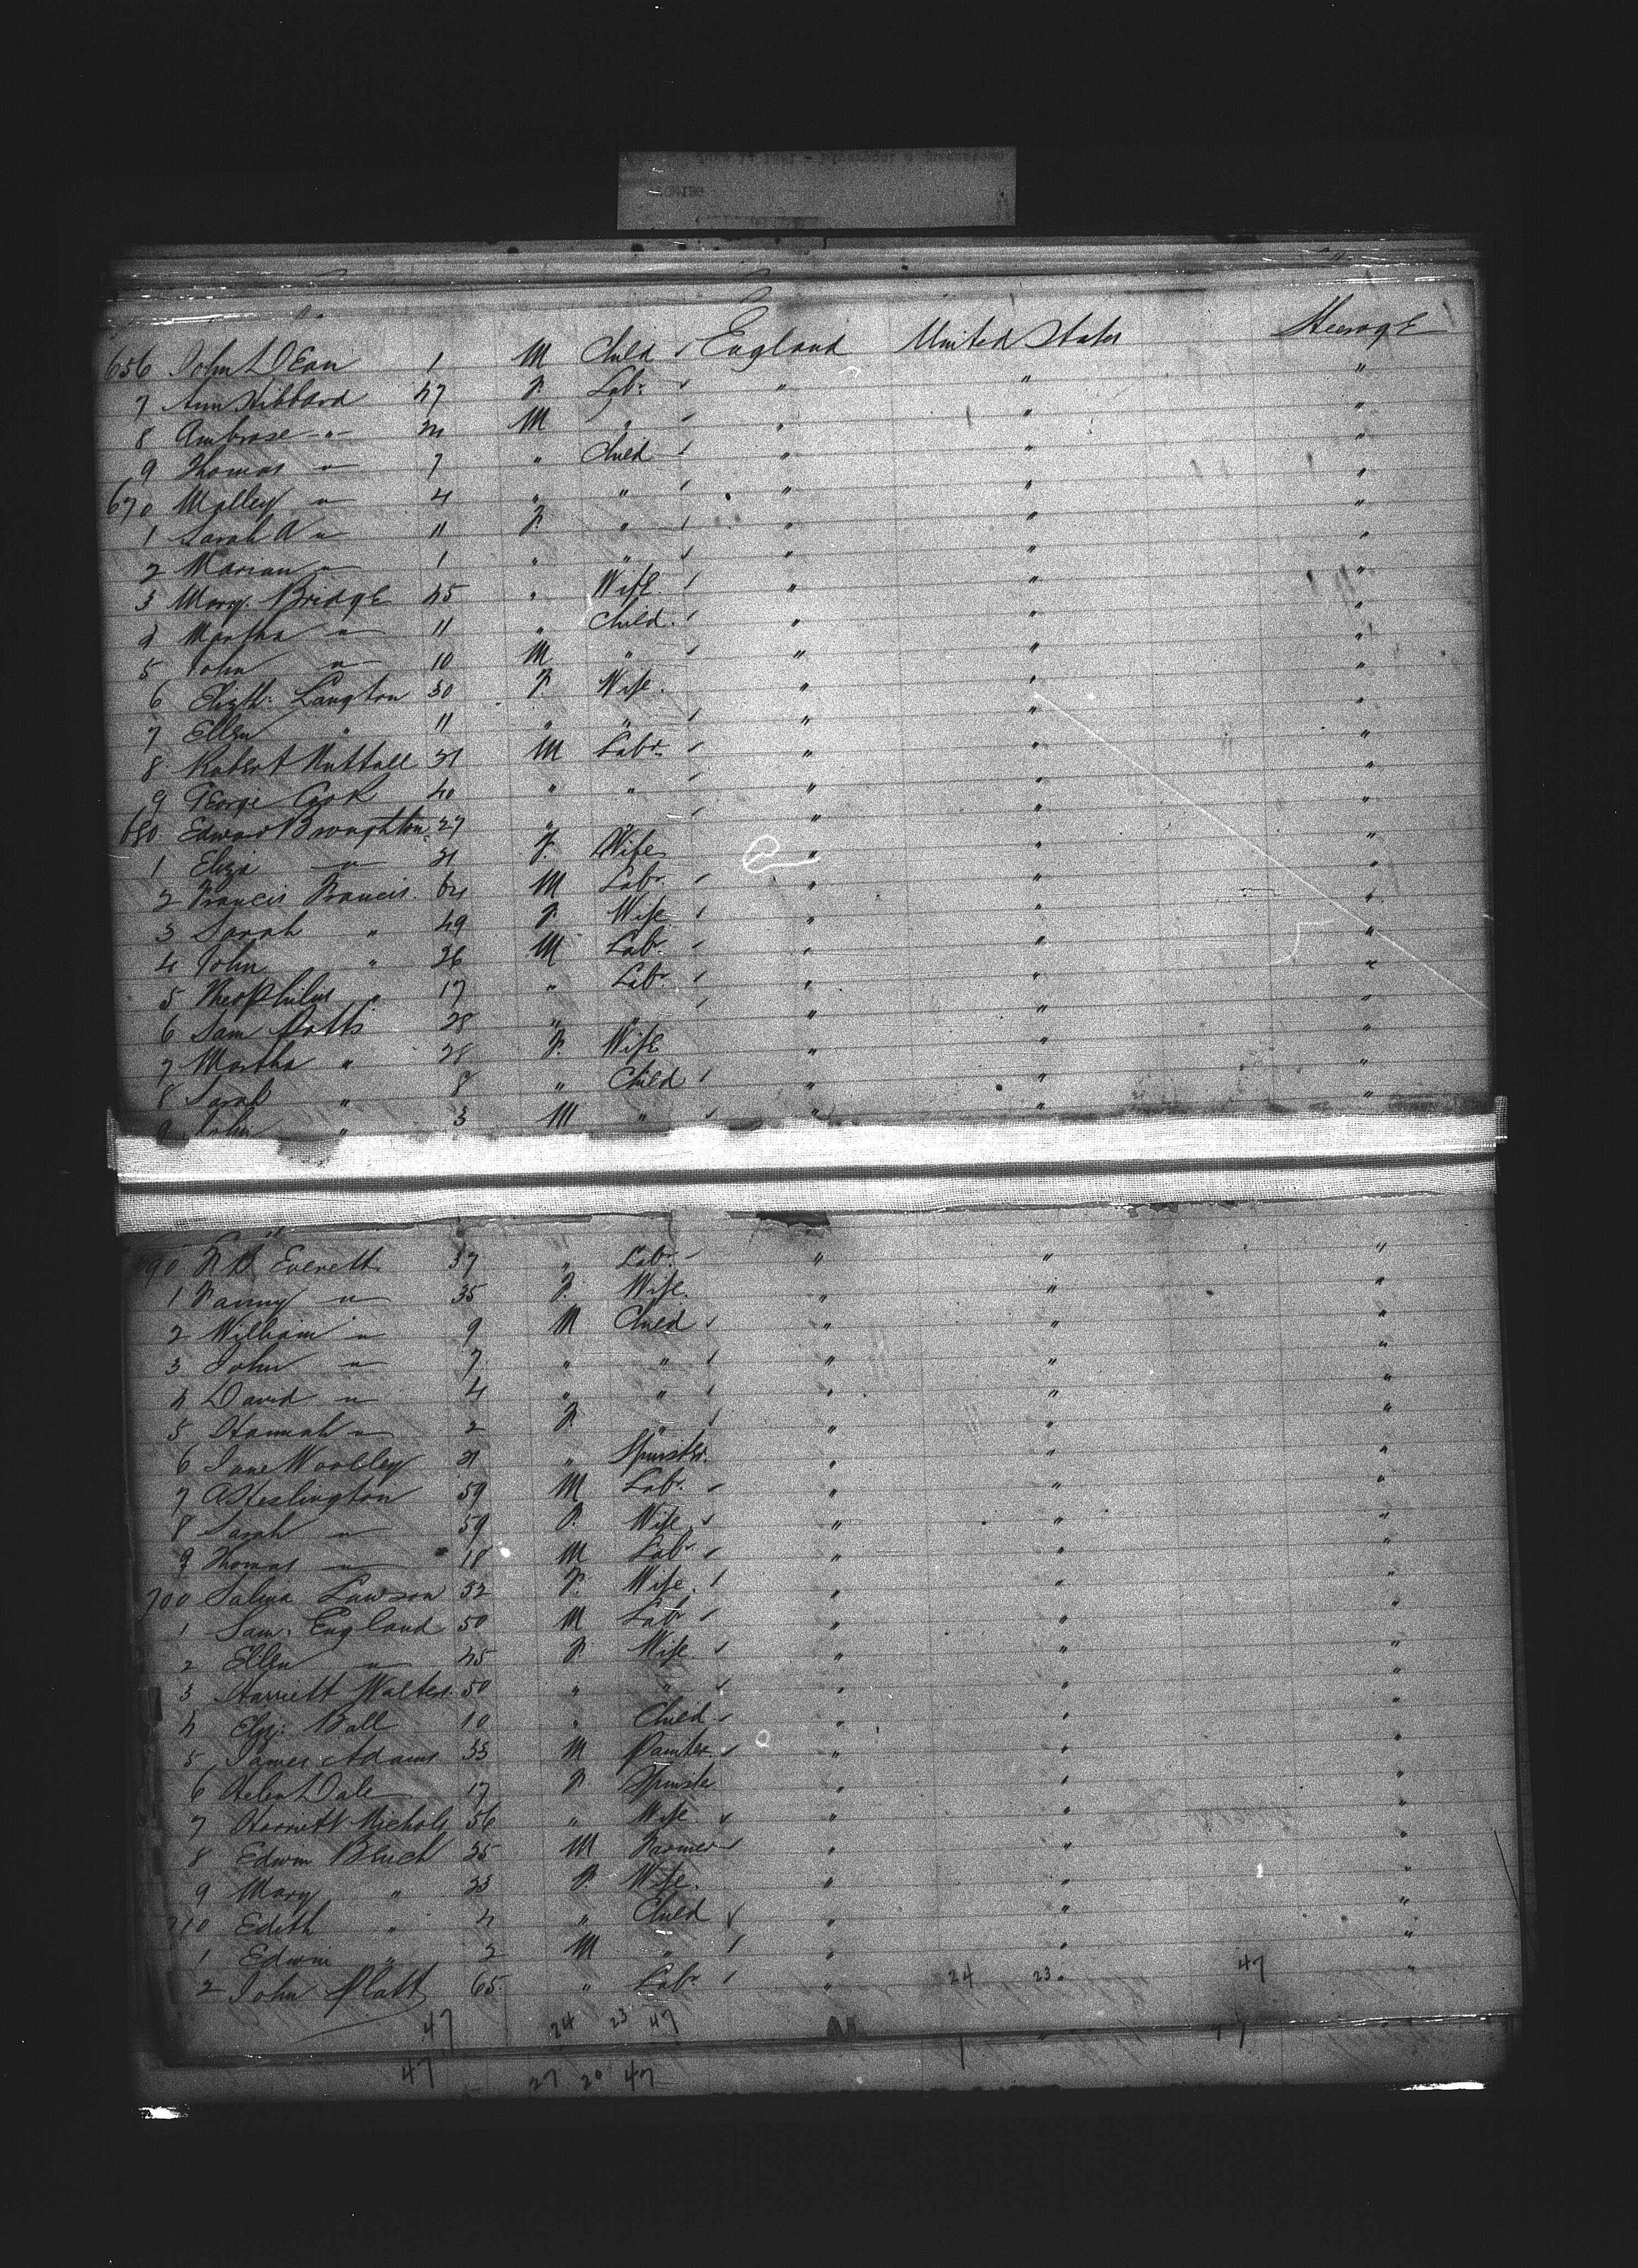 656 John Dean 1 M Child ✓ England United States Steerage
7 Ann Hibbard 47 F. Labr. ✓ " " "
8 Ambrose -"- M " ✓ " " "
9 Thomas " 7 " Child ✓ " " "
670 " 4 " " ✓ " " "
1 Sarah A " 11 F. " ✓ " " "
2 Marian " 1 " " ✓ " " "
3 Mary Bridge 45 " Wife ✓ " " "
4 Martha " 11 " Child ✓ " " "
5 John " 10 M " ✓ " " "
6 Elizth. Langton 30 F Wife. " " "
7 Ellen " 11 " " ✓ " " "
8 Robert Nuttall 31 M Labr. ✓ " " "
9 George Cook 40 " " ✓ " " "
680 Edward Broughton 27 " " ✓ " " "
1 Eliza " 31 F. Wife " " "
2 Francis Francis. 64 M Labr. ✓ " " "
3 Sarah " 49 F. Wife ✓ " " "
4 John " 26 M Labr. ✓ " " "
5 Theophilus " 17 " Labr. ✓ " " "
6 Sam Potts 28 " " ✓ " " "
7 Martha " 28 F. Wife " " "
8 Sarah " 8 " Child ✓ " " "
9 John " 3 M " ✓ " " "
90 Everett 37 " Labr. ✓ " " "
1 Fanny " 35 F. Wife. " " "
2 William " 9 M Child ✓ " " "
3 John " 7 " " ✓ " " "
4 David " 4 " " ✓ " " "
5 Hannah " 2 F. " ✓ " " "
6 Jane Woolley 31 " Spinster. " " "
7 A Heslington 59 M Labr. ✓ " " "
8 Sarah " 59 F. Wife ✓ " " "
9 Thomas " 18 M Labr ✓ " " "
700 Salina Lawson 32 F. Wife. ✓ " " "
1 Sam. England 50 M Labr ✓ " " "
2 Ellen " 45 F. Wife. ✓ " " "
3 Harriett Walter. 50 " " ✓ " " "
4 Eliz. Ball 10 " Child ✓ " " "
5 James Adams 33 M Painter ✓ " " "
6 Helen Dale 17 F. Spinster " " "
7 Harriett Nichols 56 " Wife ✓ " " "
8 Edwin 35 M Farmer ✓ " " "
9 Mary " 33 F. Wife. " " "
710 Edith " 4 " Child ✓ " " "
1 Edwin " 2 M " ✓ " " "
2 John Platt 65 " Labr. ✓ " 24 23 47 "
47 24 23 47
47 27 20 47